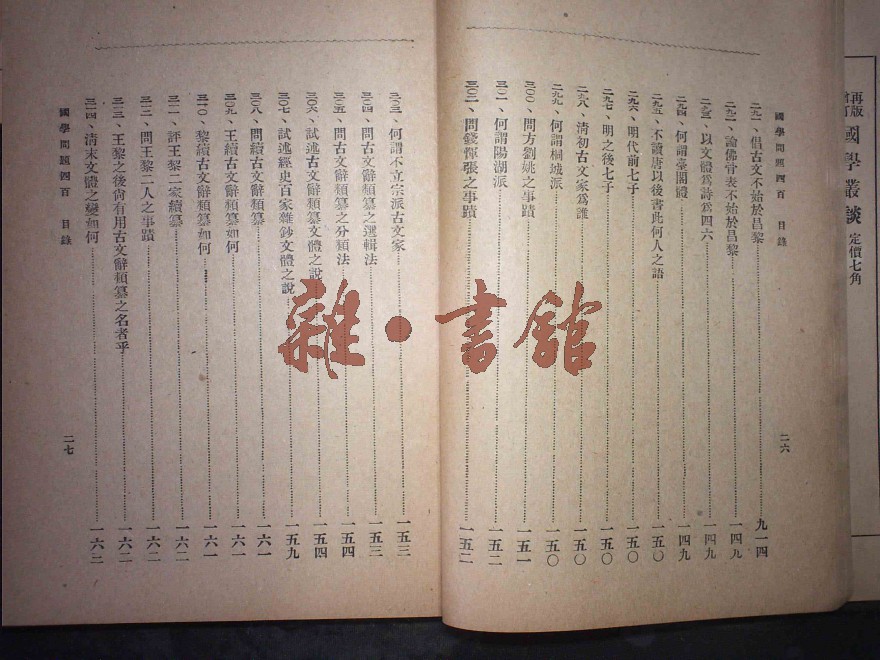 再版
國學叢談 定價七角
國學問題四百 目錄
二九一、倡古文不始於昌黎 九一四
二九二、論佛骨表不始於昌黎 一四九
二九三、以文體爲詩爲四六 一四九
二九四、何謂臺閣體 一四九
二九五、不讀唐以後書此何人之語 一五〇
二九六、明代前七子 一五〇
二九七、明之後七子 一五〇
二九八、清初古文家爲誰 一五〇
二九九、何謂桐城派 一五〇
三〇〇、問方劉姚之事蹟 一五一
三〇一、何謂陽湖派 一五二
三〇二、問錢惲張之事蹟 一五二
二六
三〇三、何謂不立宗派古文家 一五三
三〇四、問古文辭類纂之選輯法 一五三
三〇五、問古文辭類纂之分類法 一五四
三〇六、試述古文辭類纂文體之說 一五四
三〇七、試述經史百家雜鈔文體之說 一五九
三〇八、問續古文辭類纂 一六一
三〇九、王續古文辭類纂如何 一六一
三一〇、黎續古文辭類纂如何 一六一
三一一、評王黎二家續纂 一六二
三一二、問王黎二人之事蹟 一六二
三一三、王黎之後尙有用古文辭類纂之名者乎 一六二
三一四、清末文體之變如何 一六二
國學問題四百 目錄
二七
雜·書館